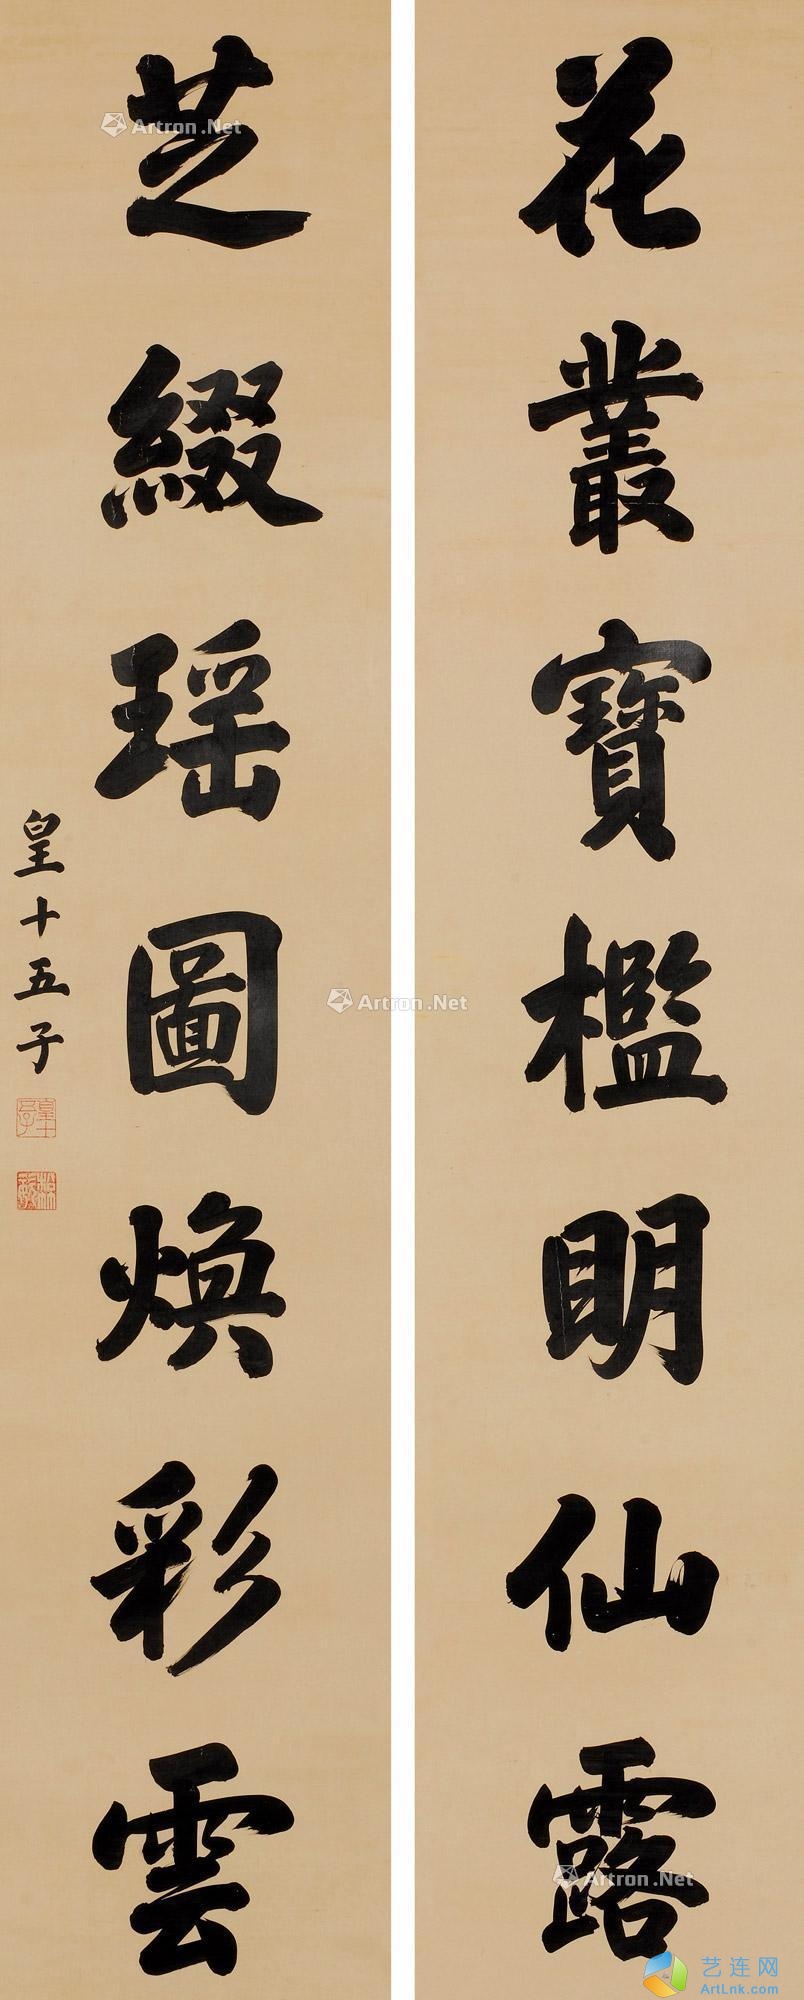 花叢寶檻明仙露
芝綴瑶圖煥彩雲
皇十五子
Artron.Net
Artron.Net
Artron.Net
艺连网
ArtLnk.com